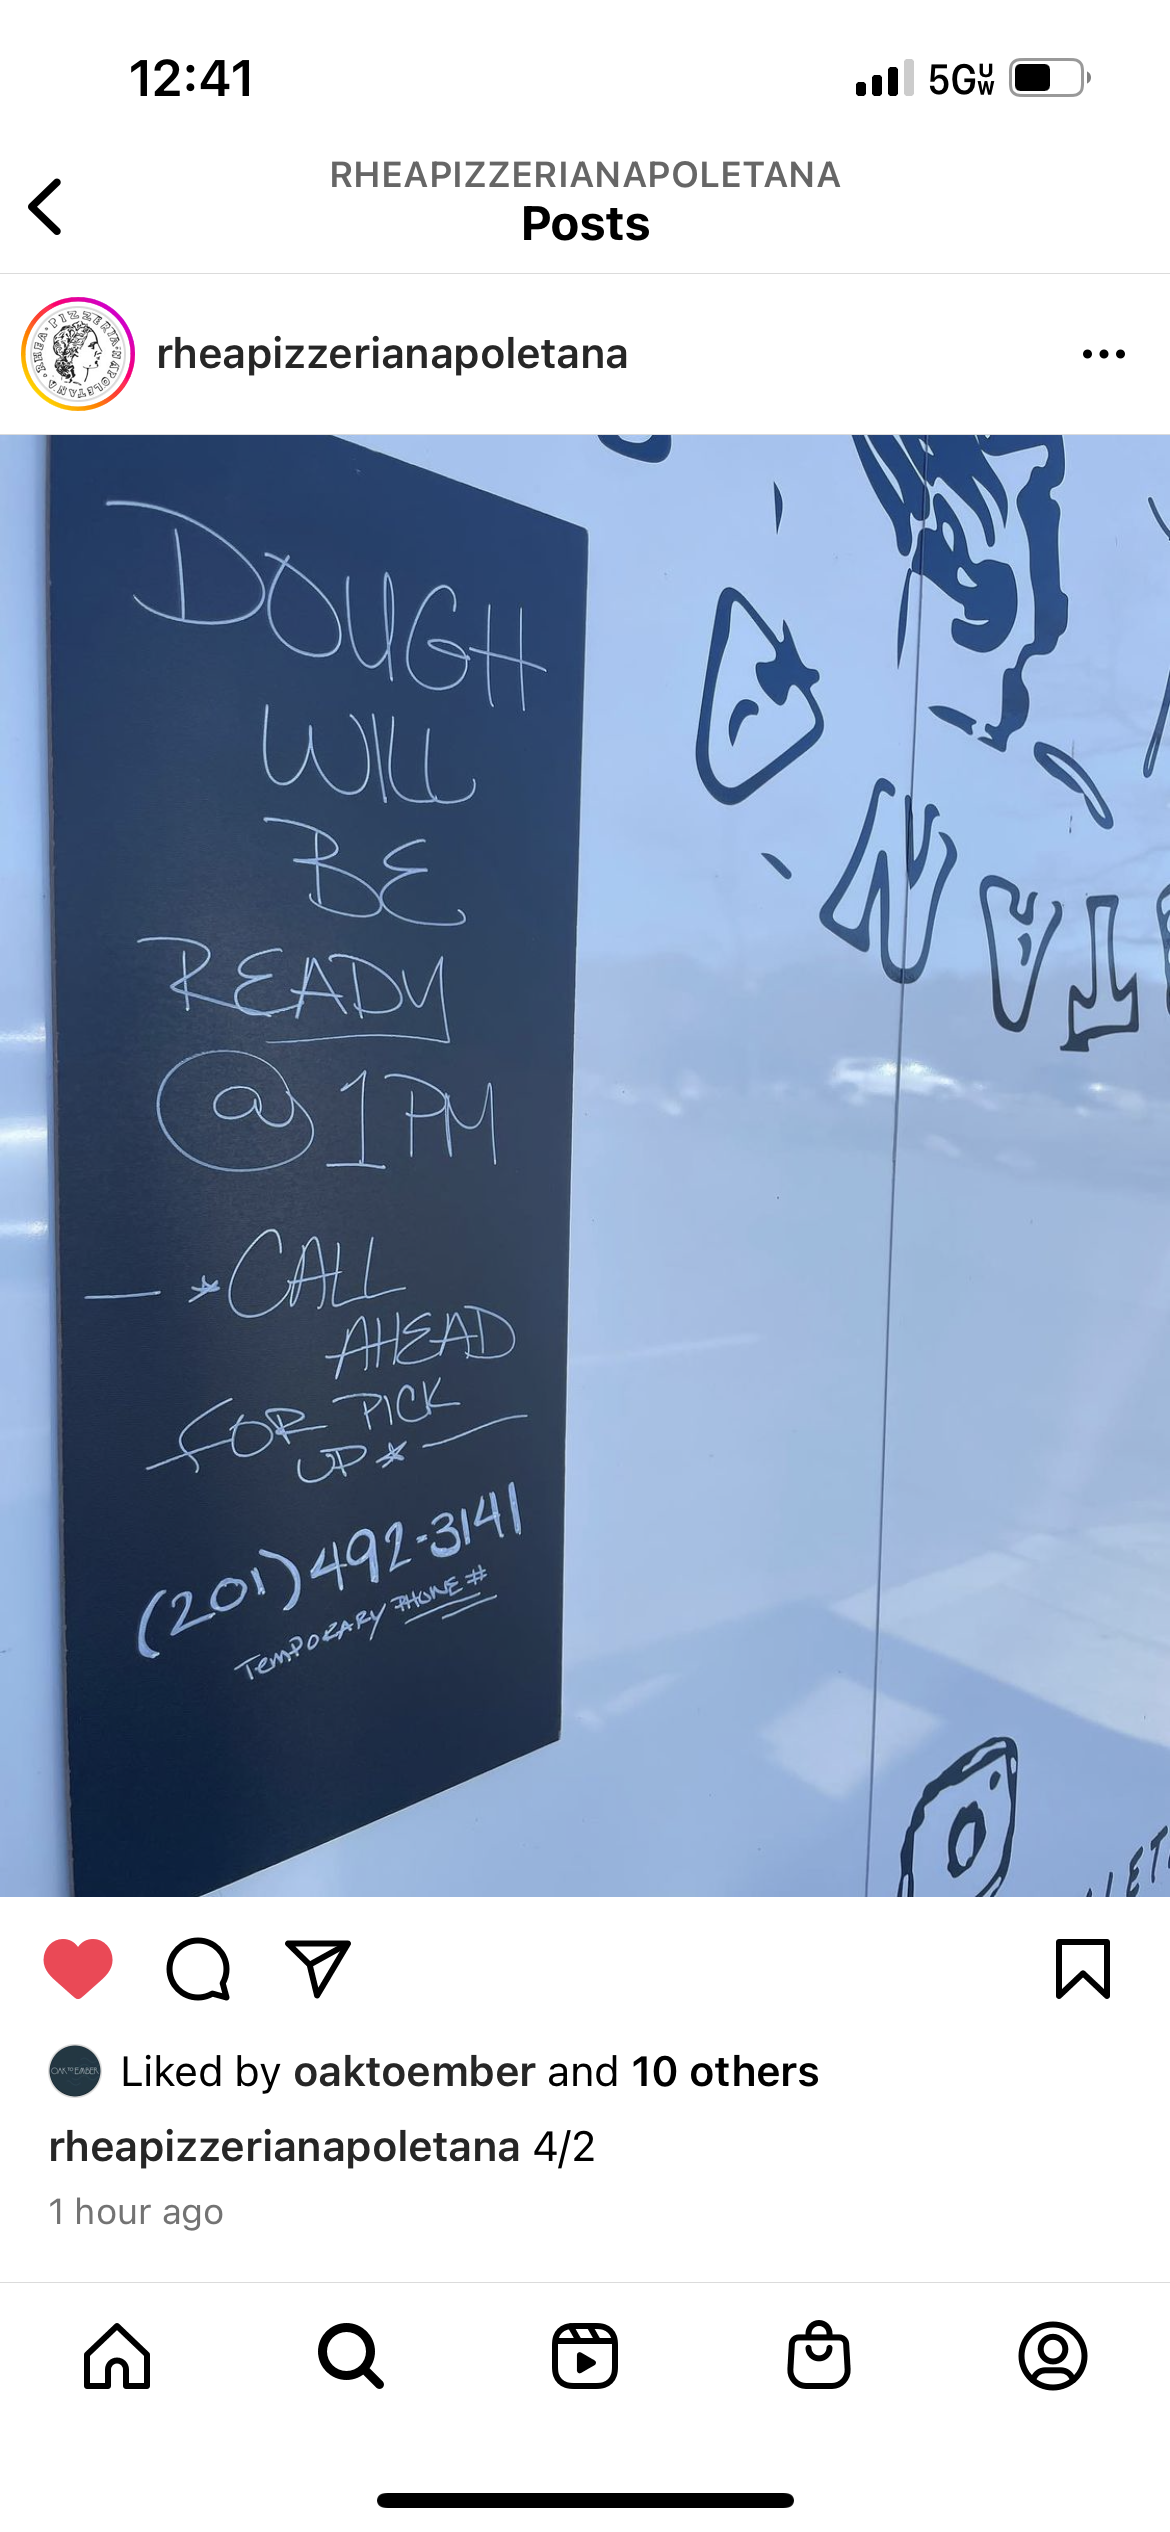 12:41
5G UW
RHEAPIZZERIANAPOLETANA
Posts
RHEA · PIZZERIA · NAPOLETANA
rheapizzerianapoletana
DOUGH
WILL
BE
READY
@ 1PM
— *CALL
AHEAD
FOR PICK
UP* —
(201) 492-3141
TEMPORARY PHONE #
OAK TO EMBER
Liked by oaktoember and 10 others
rheapizzerianapoletana 4/2
1 hour ago